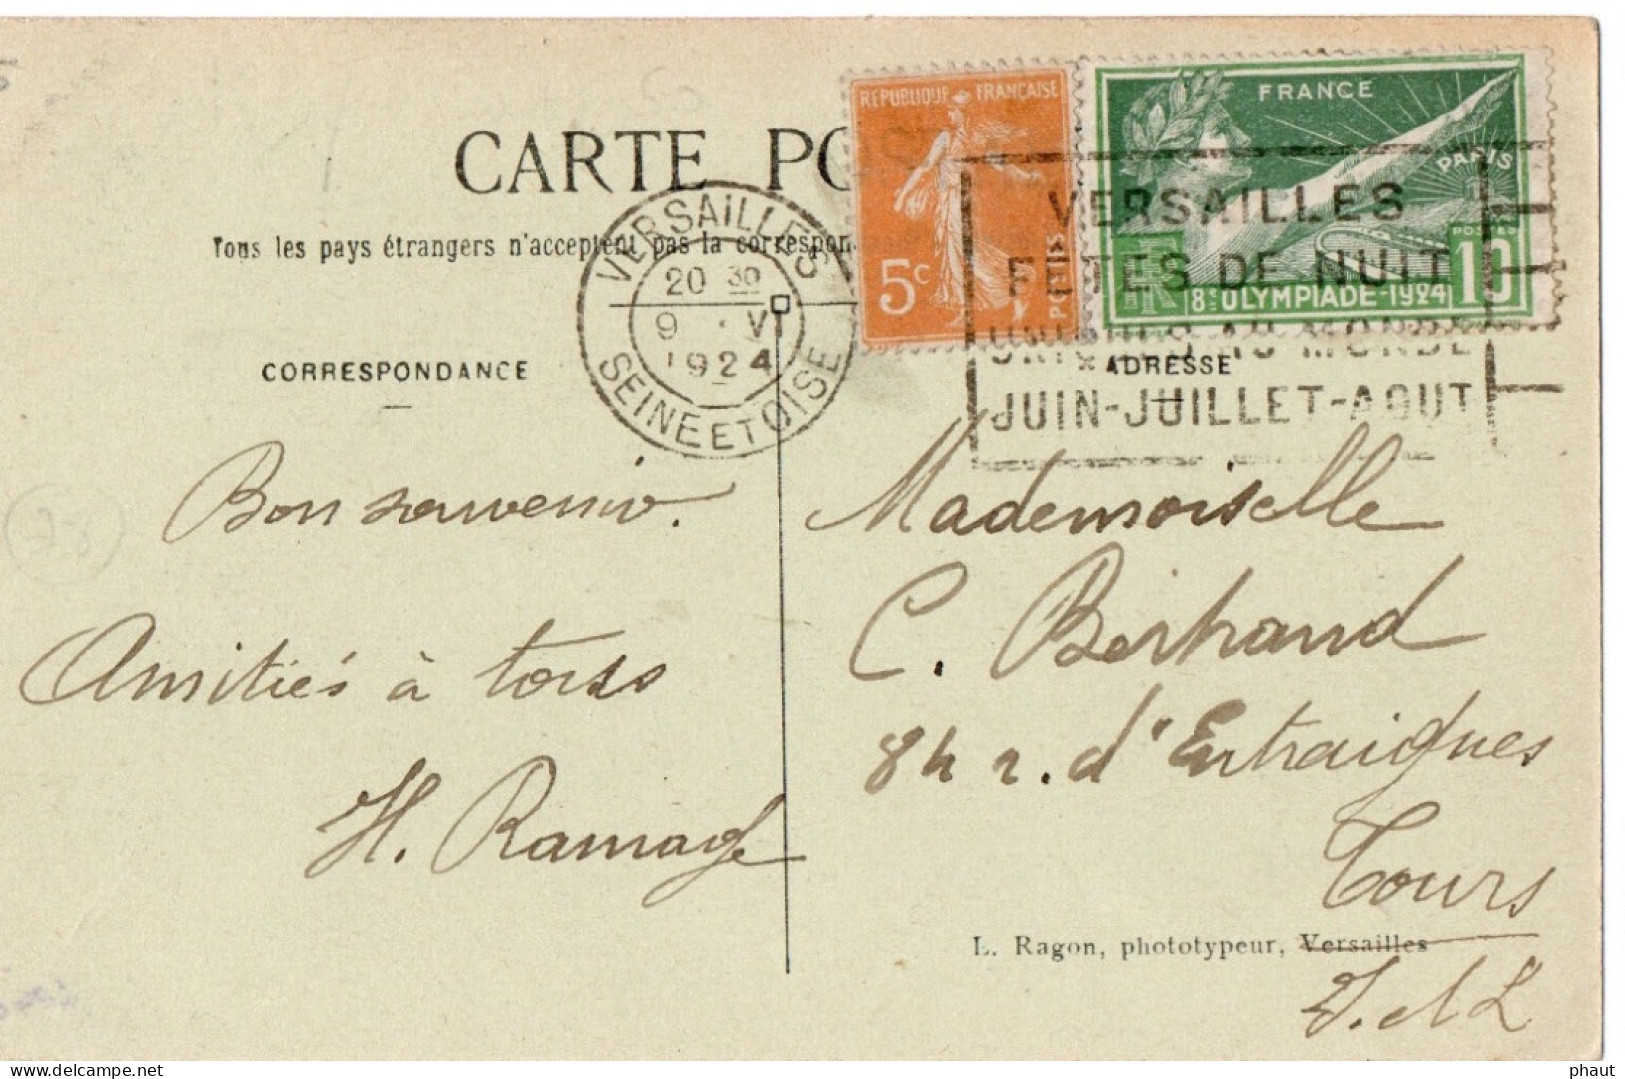 CARTE PO
RÉPUBLIQUE FRANÇAISE
5c
POSTES
FRANCE
PARIS
POSTES
RF
10
8e OLYMPIADE-1924
VERSAILLES
20 30
9 · VI
1924
SEINE ET OISE
VERSAILLES
FETES DE NUIT
UNIQUES AU MONDE
JUIN-JUILLET-AOUT
Tous les pays étrangers n'acceptent pas la correspon
CORRESPONDANCE
ADRESSE
Bon souvenir.
Amitiés à tous
H. Ramage
Mademoiselle
C. Bertrand
84 r. d'Entraigues
Tours
I. et L
L. Ragon, phototypeur, Versailles
phaut